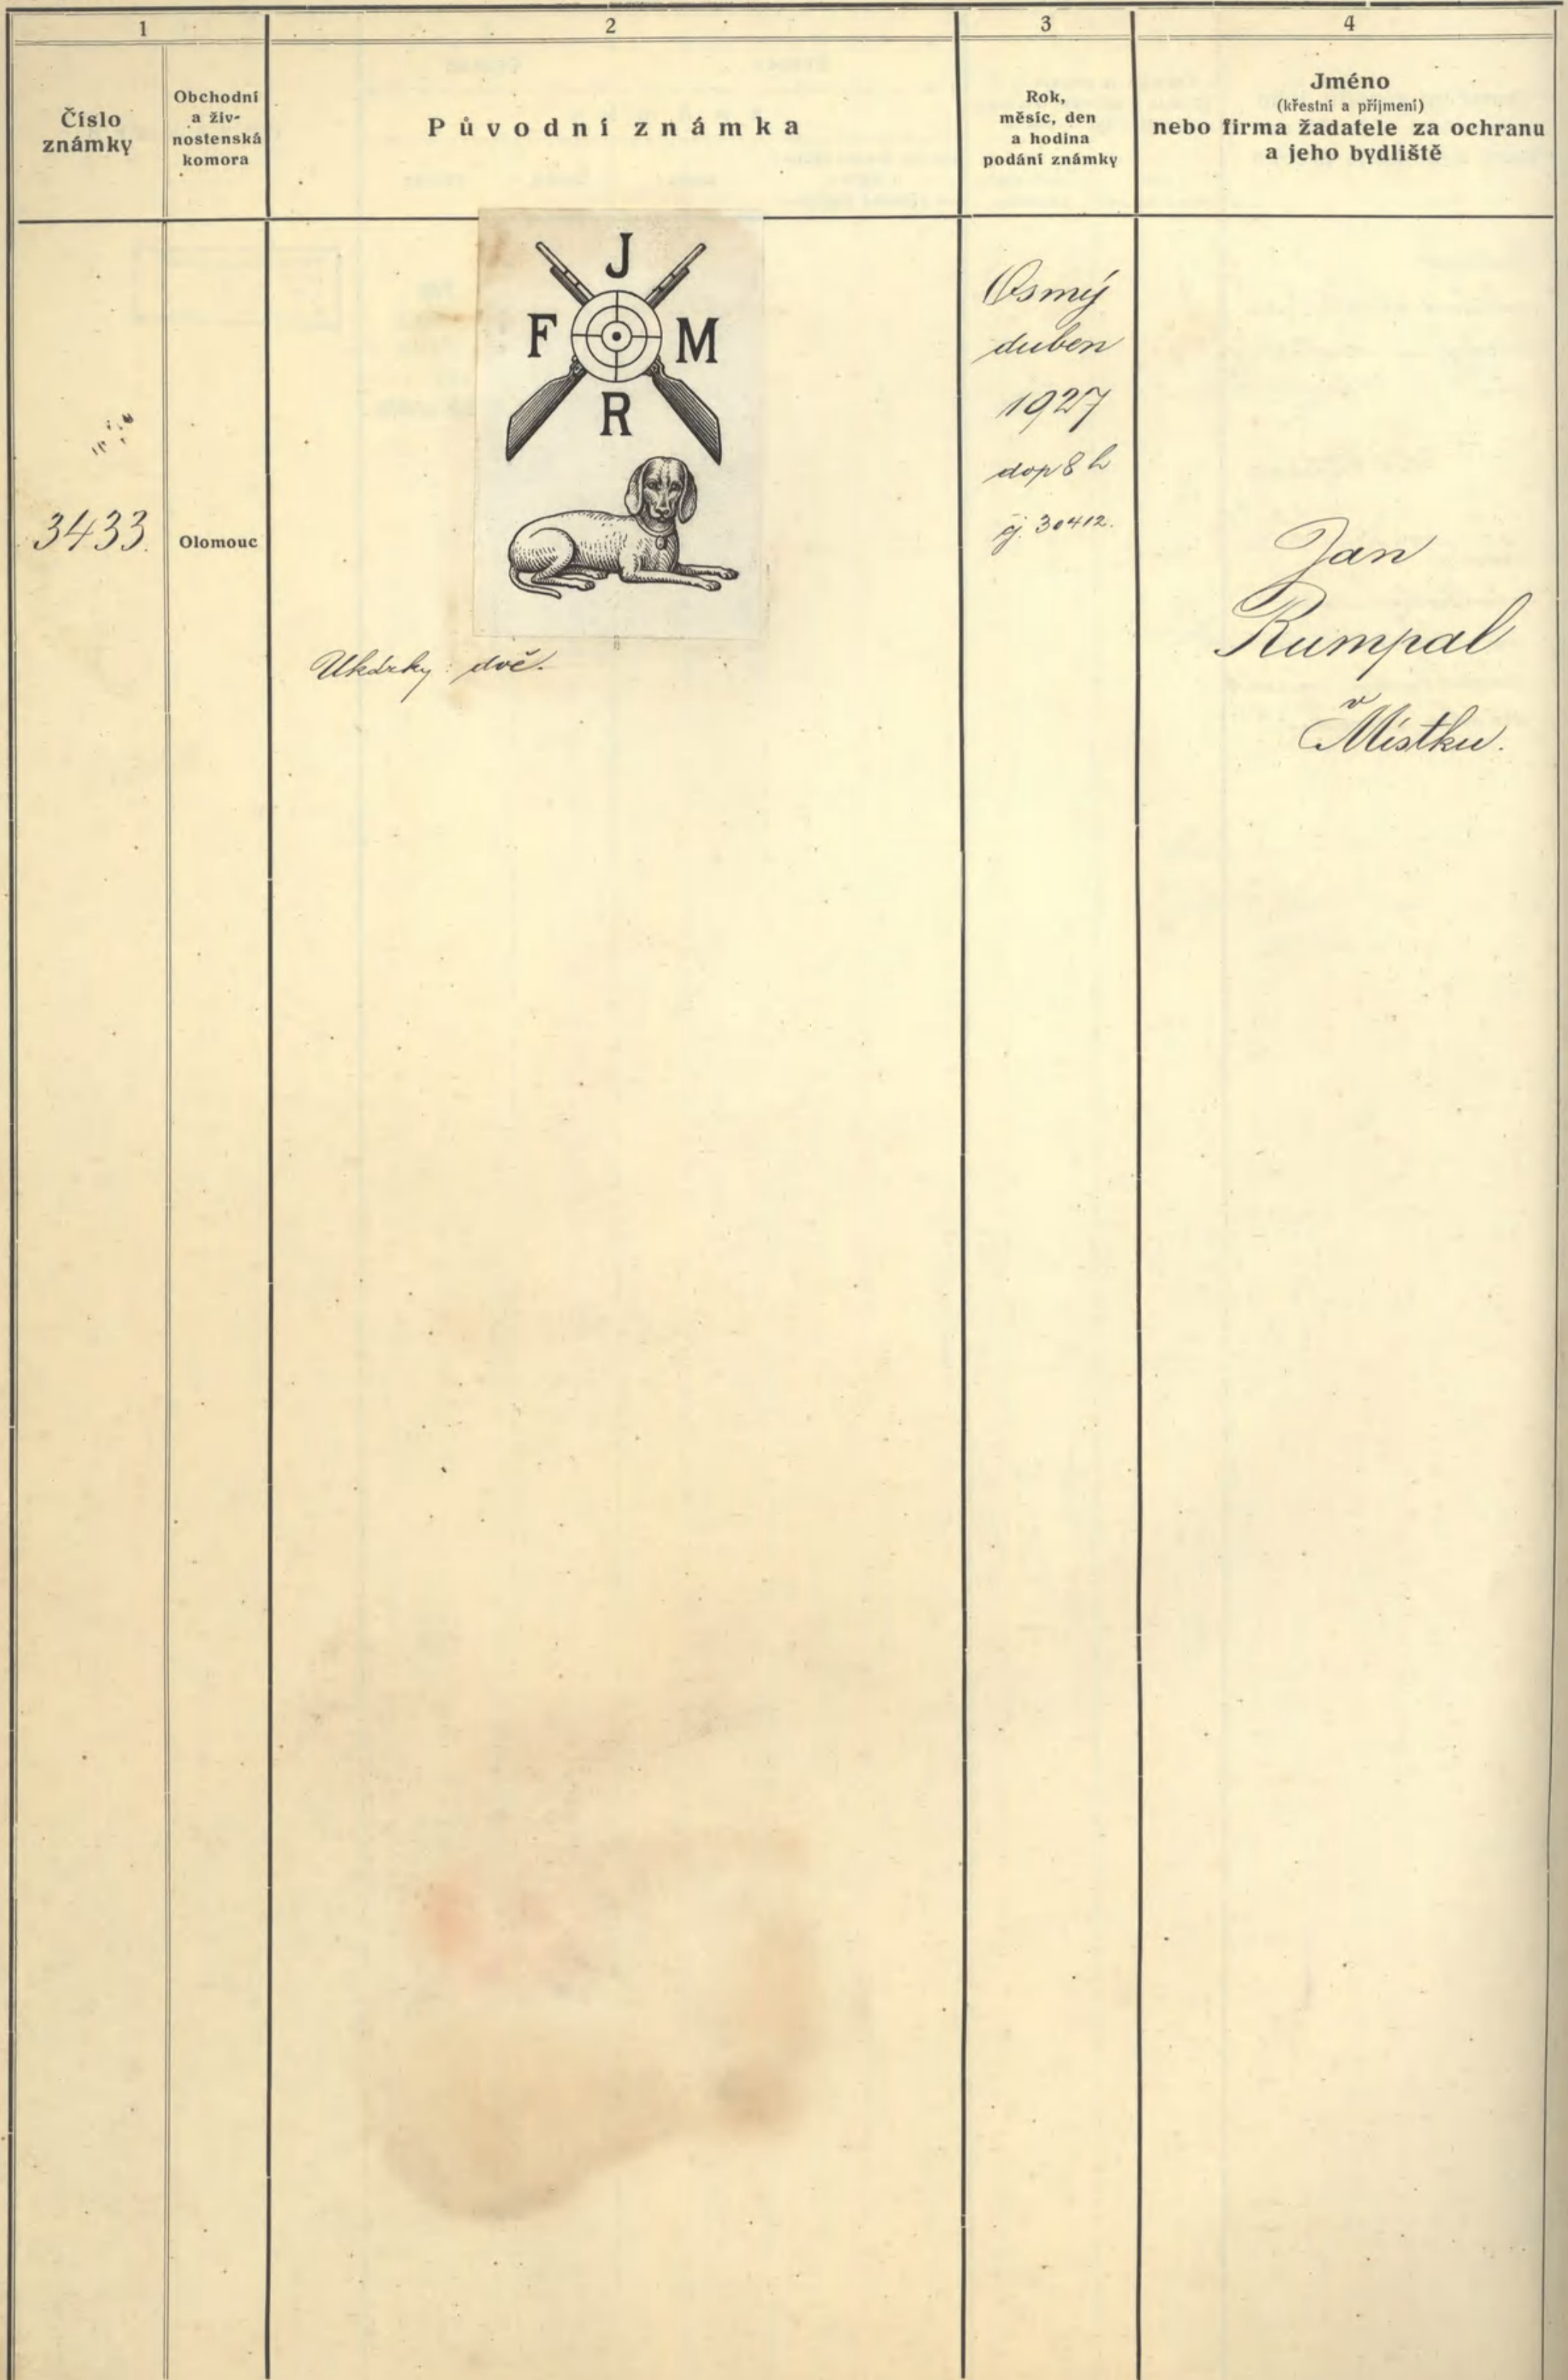 1
2
3
4
Číslo
známky
Obchodní
a živ-
nostenská
komora
Původní známka
Rok,
měsíc, den
a hodina
podání známky
Jméno
(křestní a příjmení)
nebo firma žadatele za ochranu
a jeho bydliště
3433.
Olomouc
J
F M
R
Ukázky: dvě.
Osmý
duben
1927
dop 8 h
čj. 30412.
Jan
Rumpal
v
Místku.